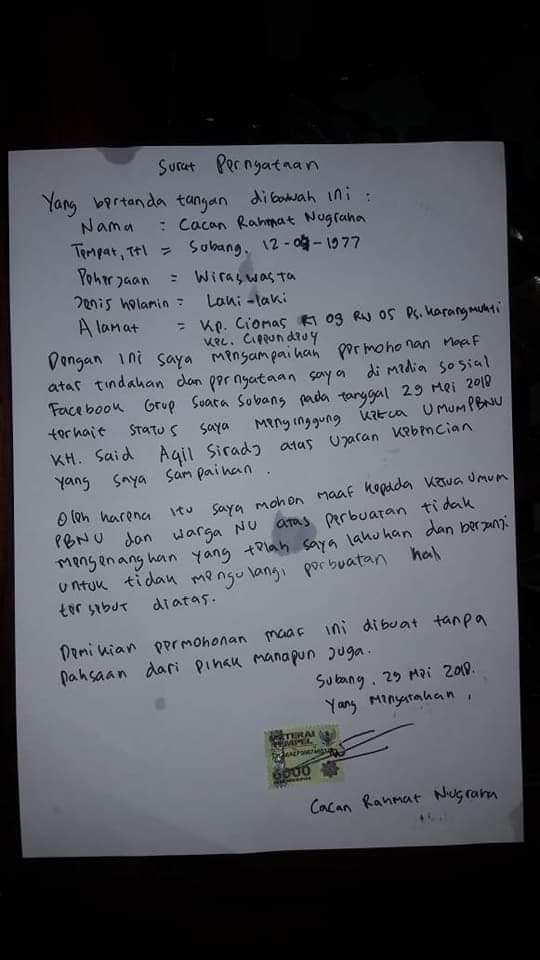 Surat Pernyataan
Yang bertanda tangan dibawah ini :
Nama : Cacan Rahmat Nugraha
Tempat, Ttl = Subang, 12-09-1977
Pekerjaan = Wiraswasta
Jenis kelamin = Laki-laki
Alamat = Kp. Ciomas RT 09 RW 05 Ds. Karangmukti
Kec. Cipeundeuy
Dengan ini saya menyampaikan permohonan maaf
atas tindakan dan pernyataan saya di media sosial
Facebook Grup Suara Subang pada tanggal 29 Mei 2018
terkait status saya menyinggung Ketua Umum PBNU
KH. Said Aqil Siradj atas Ujaran Kebencian
yang saya sampaikan.
Oleh karena itu saya mohon maaf kepada Ketua Umum
PBNU dan warga NU atas perbuatan tidak
mengenangkan yang telah saya lakukan dan berjanji
untuk tidak mengulangi perbuatan hal
tersebut diatas.
Demikian permohonan maaf ini dibuat tanpa
paksaan dari pihak manapun juga.
Subang, 29 Mei 2018.
Yang Menyatakan,
METERAI
TEMPEL
6000
Cacan Rahmat Nugraha